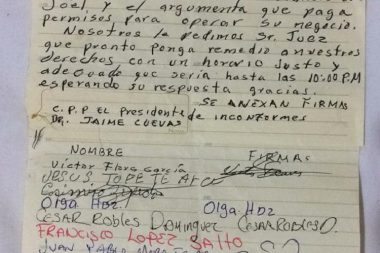 Joel, y el argumento que paga
permisos para operar su negocio.
Nosotros le pedimos Sr. Juez
que pronto ponga remedio a nuestros
derechos con un horario justo y
adecuado que seria hasta las 10:00 P.M
esperando su respuesta gracias.
SE ANEXAN FIRMAS
de inconformes
C.P.P El presidente
Dr. JAIME CUEVAS
NOMBRE FIRMAS
Victor Flores García
Olga Hdz. Olga Hdz
CESAR ROBLES DOMINGUEZ CESAR ROBLES D.
FRANCISCO LOPEZ
JUAN PABLO